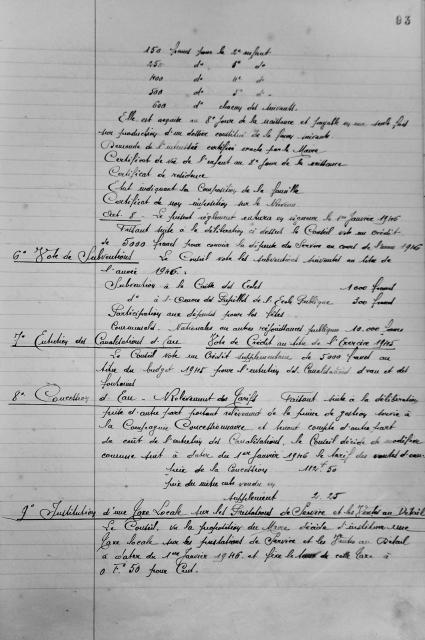 93
150 francs pour le 2e enfant
250 do 3e do
400 do 4e do
500 do 5e do
600 do chacun des suivants.
Elle est acquise au 8e jour de la naissance et payable en une seule fois
sur production d'un dossier constitué de la façon suivante.
Demande de l'intéressé certifiée exacte par le Maire
Certificat de vie de l'enfant au 8e jour de la naissance
Certificat de résidence
Etat indiquant la Composition de la famille
Certificat de non imposition sur le Revenu
Art. 8 - Le présent règlement entrera en vigueur le 1er Janvier 1946
Faisant suite à la délibération ci dessus le Conseil vote un crédit
de 5000 francs pour couvrir la dépense du Service au cours de l'année 1946
6° Vote de Subventions Le Conseil vote les subventions suivantes au titre de
l'année 1946.
Subvention à la Caisse des Ecoles 1000 francs
do à l'Oeuvre des Pupilles de l'Ecole Publique 300 francs
Participation aux dépenses pour les fêtes
Communales, Nationales ou autres réjouissances publiques 10.000 francs
7° Entretien des Canalisations d'eau Vote de Crédit au titre de l'Exercice 1945
Le Conseil vote un Crédit supplémentaire de 5000 francs au
titre du budget 1945 pour l'entretien des Canalisations d'eau et des
fontaines
8° Concession d'eau - Relèvement des Tarifs Faisant suite à la délibération
prise d'autre part portant relèvement de la prime de gestion versée à
la Compagnie Concessionnaire et tenant compte d'autre part
du coût de l'entretien des Canalisations, le Conseil décide de modifier
comme suit à dater du 1er Janvier 1946 le tarif des ventes d'eau
prix de la Concession 112f 50
prix du mètre cube vendu en
supplément 2 25
9° Institution d'une Taxe Locale sur les Prestations de Service et les Ventes au Détail
Le Conseil, vu la proposition du Maire décide d'instituer une
Taxe Locale sur les prestations de Service et les Ventes au Détail
à dater du 1er Janvier 1946 et fixe le taux de cette Taxe à
0 F. 50 pour Cent.